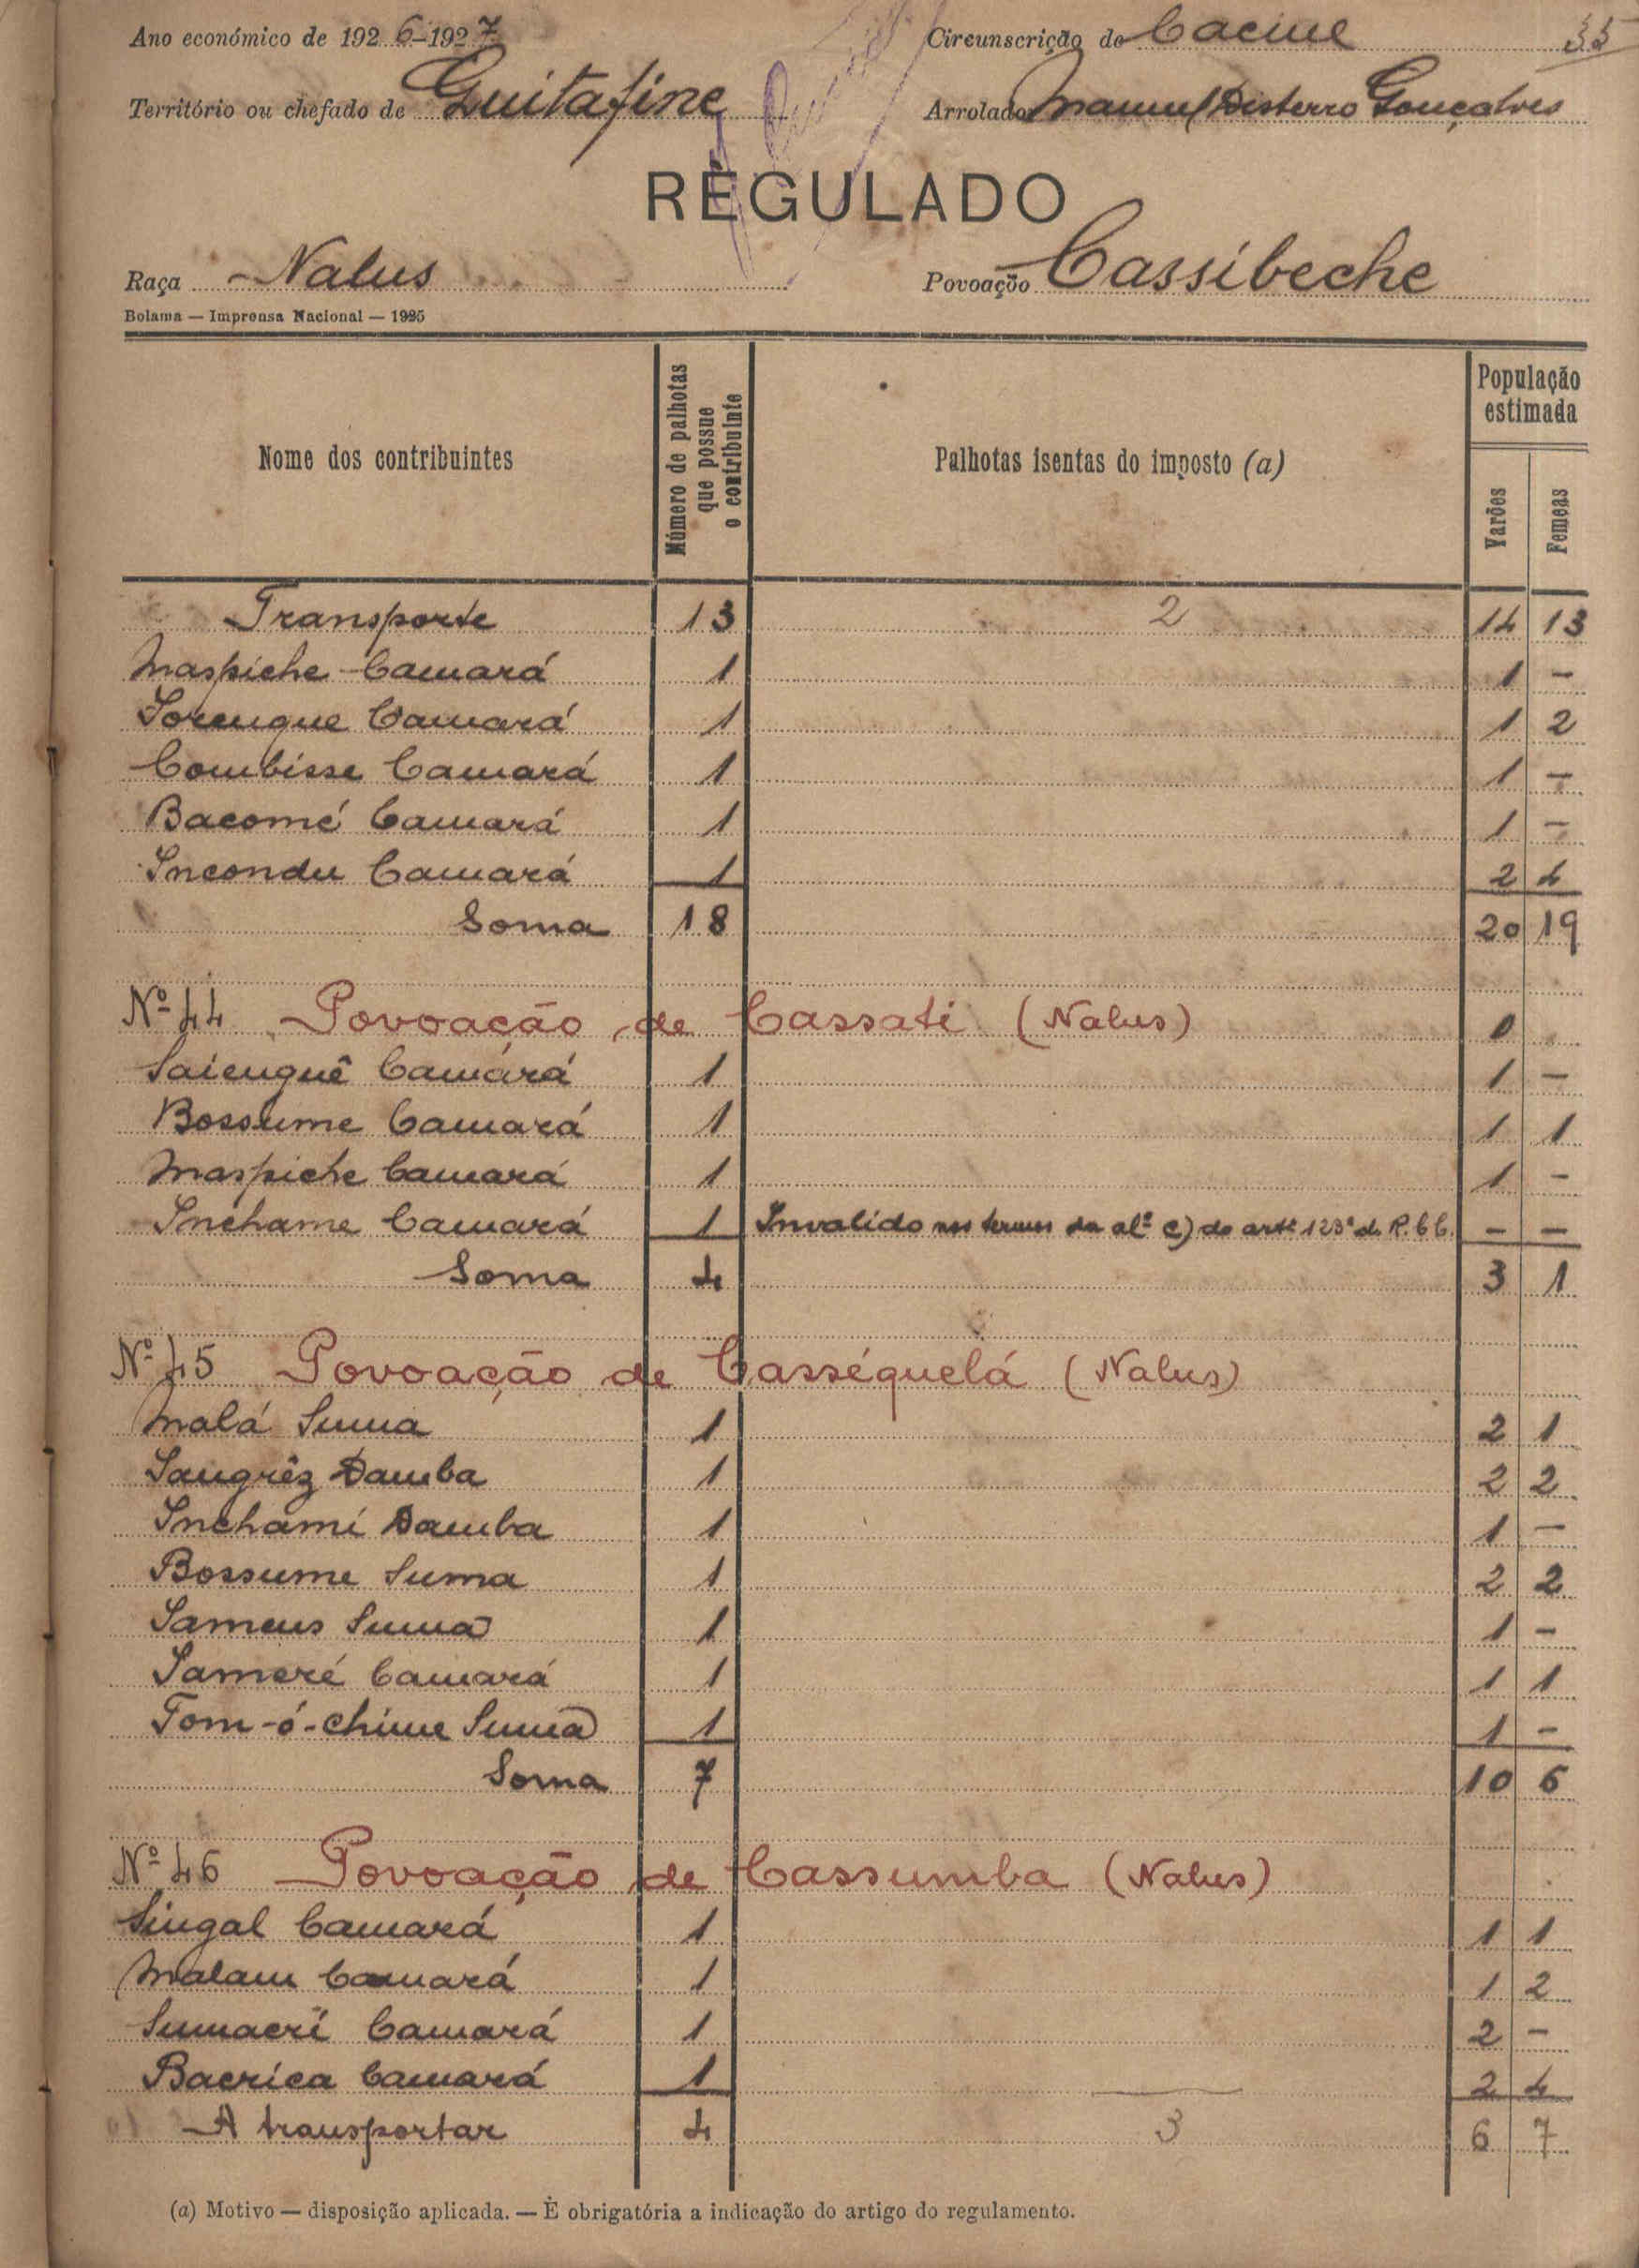 Ano económico de 1926-1927 Circunscrição de Cacine 35
Território ou chefado de Guitafine Arrolador Manuel Desterro Gonçalves
REGULADO
Raça Nalus Povoação Cassibeche
Bolama — Imprensa Nacional — 1925
Nome dos contribuintes Número de palhotas que possue o contribuinte Palhotas isentas do imposto (a) População estimada
Varões Femeas
Transporte 13 2 14 13
Maspiche Camará 1 1 -
Sorengue Camará 1 1 2
Combisse Camará 1 1 -
Bacomé Camará 1 1 -
Incondu Camará 1 2 4
Soma 18 20 19
Nº 44 Povoação de Cassati (Nalus) 0
Saienguê Camará 1 1 -
Bossume Camará 1 1 1
Maspiche Camará 1 1 -
Inchame Camará 1 Invalido nos termos da alª c) do artº 123º d. R.C.C. - -
Soma 4 3 1
Nº 45 Povoação de Casséquelá (Nalus)
Malá Suma 1 2 1
Sangrêz Damba 1 2 2
Inchami Damba 1 1 -
Bossume Suma 1 2 2
Sameus Suma 1 1 -
Sameré Camará 1 1 1
Tom-ó-chime Suma 1 1 -
Soma 7 10 6
Nº 46 Povoação de Cassumba (Nalus)
Singal Camará 1 1 1
Malam Camará 1 1 2
Sumacri Camará 1 2 -
Bacrica Camará 1 2 4
A transportar 4 3 6 7
(a) Motivo — disposição aplicada. — É obrigatória a indicação do artigo do regulamento.